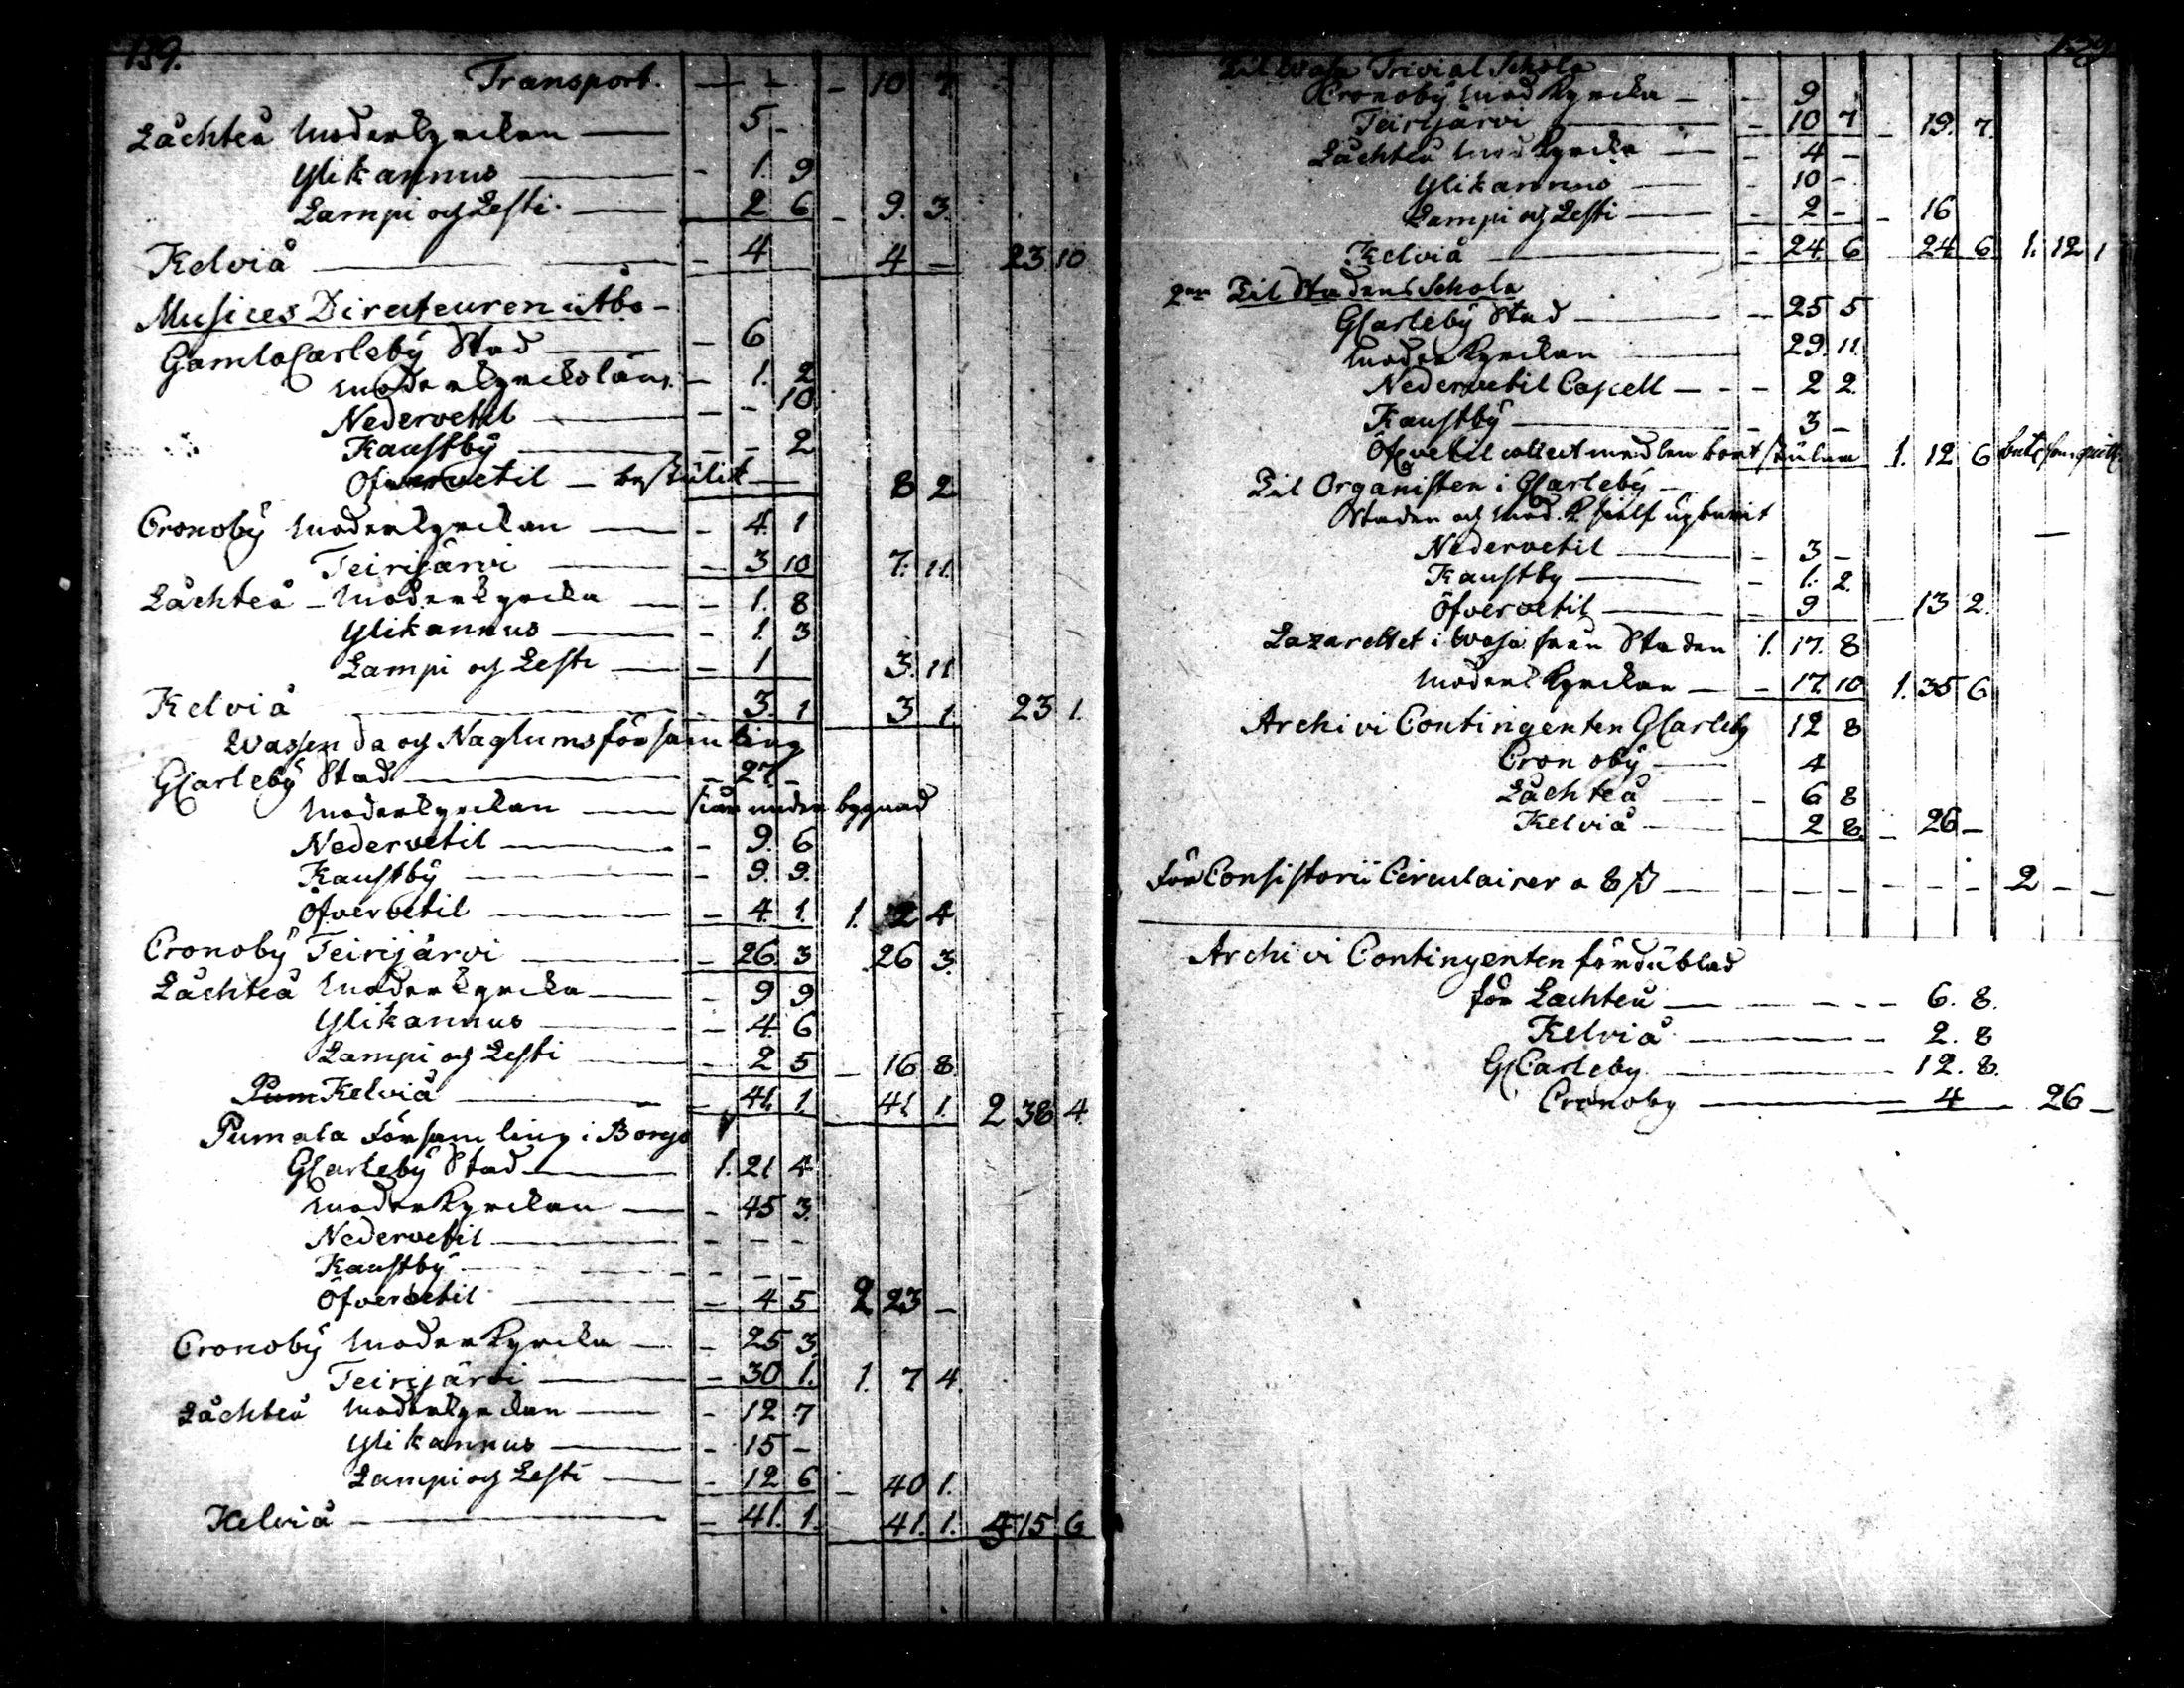 139.
Transport. — - - 10 7
Låchteå Moderkyrckan — 5 -
Ylikannus — - 1. 9
Lampi och Lesti — 2 6 - 9. 3.
Kelviå — - 4 4 - 23 10
Musices Directeuren i Åbo -
GamlaCarleby Stad — - 6
Moderkyrckolän. - 1. 2
Nedervetil — - - 10
Kaustby — - - 2
Ofvervetil — 8 2
Cronoby Moderkyrckan — - 4. 1
Teirijärvi — - 3 10 7. 11.
Låchteå - Moderkyrcka — - 1. 8
Ylikannus — - 1. 3
Lampi och Lesti — - 1 3. 11
Kelviå — - 3. 1 3 1. 23 1.
Wassenda och Naglums församling
GCarleby Stad — - 27. -
Moderkyrckan — under bygnad
Nedervetil — - 9. 6
Kaustby — - 9. 9.
Öfvervetil — - 4. 1. 1. 2 4
Cronoby Teirijärvi — - 26. 3 26 3.
Låchteå Moderkyrcka — - 9 9
Ylikannus — - 4. 6
Lampi och Lesti — - 2 5 - 16 8.
Pum Kelviå — - 41. 1. 41. 1. 2 38 4.
Pumala Församling i Borgo
GCarleby Stad — 1. 21. 4
Moderkyrckan — - 45 3.
Nedervetil — - - -
Kaustby - - - -
Öfvervetil — - 4 5 2 23 -
Cronoby Moderkyrcka — - 25 3.
Teirijärvi — - 30 1. 1. 7 4.
Låchteå Moderkyrckan — - 12 7
Ylikannus — - 15 -
Lampi och Lesti — - 12 6 - 40 1.
Kelviå — - 41. 1. 41. 1. 4 15 6
Til Wasa Trivial Schola
Cronoby Mod Kyrcka - - 9
Teirijärvi — - 10 7 - 19. 7.
Låchteå Mod Kyrcka — - 4 -
Ylikannus — - 10 -
Lampi och Lesti — - 2 - - 16
Kelviå — - 24 6 24 6 1. 12 1
Til Stadens Schola
GCarleby Stad — - 25 5
Moder Kyrckan — 29. 11.
Nedervetil Capell - - - 2 2.
Kaustby — - 3 -
Öfvetil collect medlen bort stulna 1. 12 6
Til Organisten i GCarleby -
Staden och Mod. K sielf upburit —
Nedervetil — - 3 -
Kaustby — - 1. 2.
Öfvervetil — - 9 - 13 2.
Lazarettet i Wasa från Staden 1. 17. 8
Moder Kyrckan — - 17. 10 1. 35 6
Archivi Contingenten GCarleby 12 8
Cronoby — 4
Låchteå — - 6 8
Kelviå — 2 8. - 26 -
För Consistorii Circulairer a 8 — - - - - - - 2 - -
Archivi Contingenten
för Lachteå — - - - 6. 8.
Kelviå — 2. 8
GCarleby — 12. 8.
Cronoby — 4 — 26 -